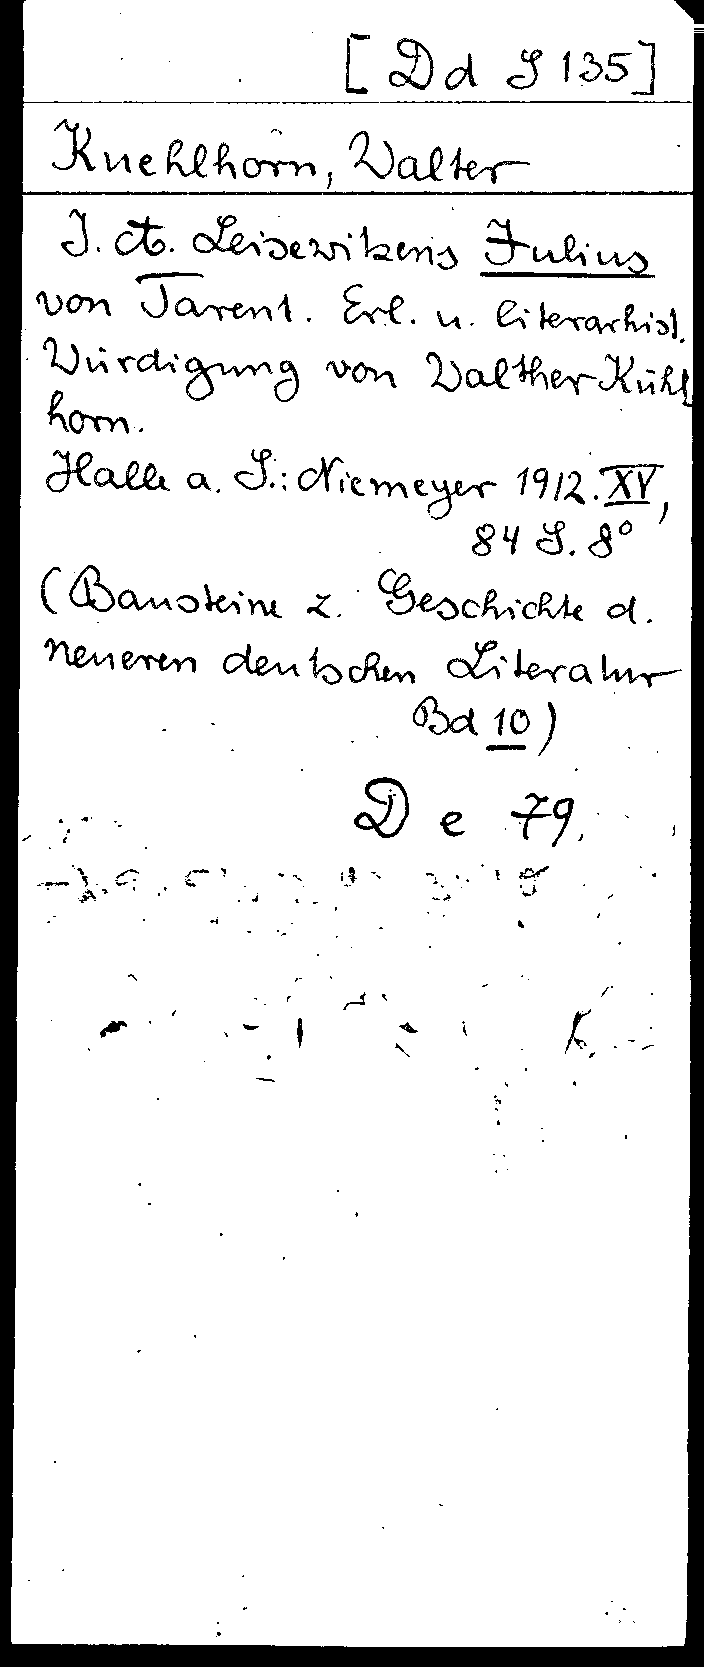 [Dd S 135]
Kuehlhorn, Walter
J. A. Leisewitzens Julius
von Tarent. Erl. u. literarhist.
Würdigung von Walther Kühl
horn.
Halle a. S.: Niemeyer 1912. XV,
84 S. 8°
(Bausteine z. Geschichte d.
neueren deutschen Literatur
Bd 10)
D e 79.